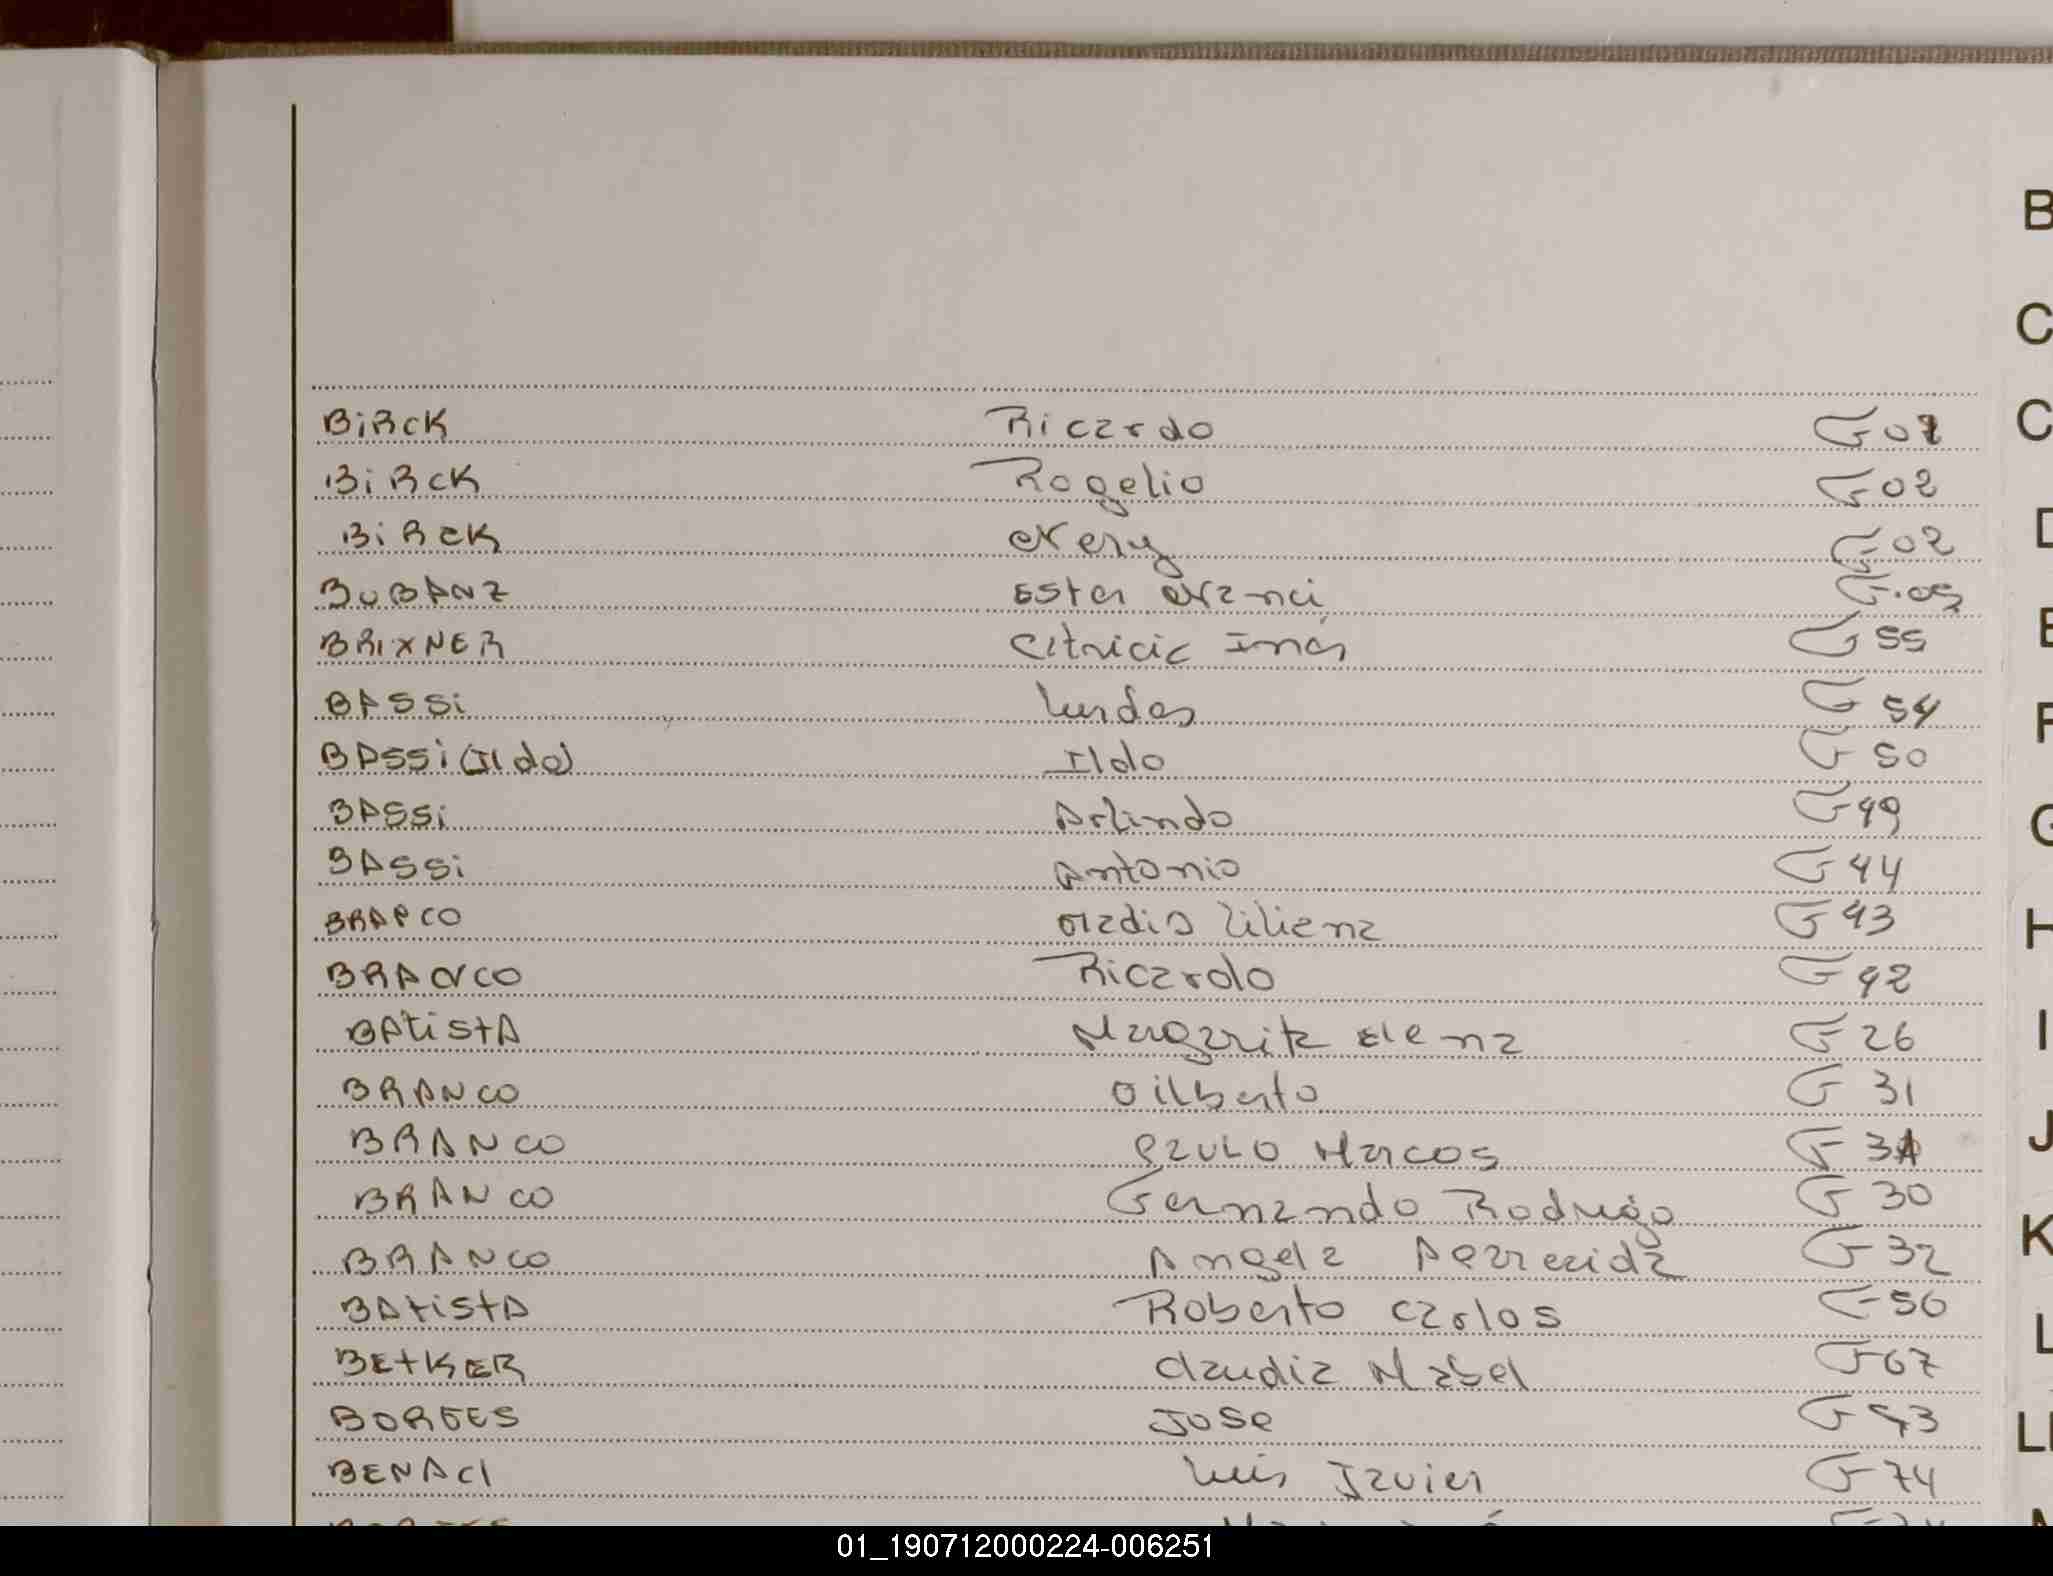 B
C
C
D
E
F
G
H
I
J
K
L
LL
BiRCK Ricardo F 01
BiRCK Rogelio F 02
BiRCK Nery F 02
BUBANZ Ester Nanci F.05
BRIXNER Inés F 55
BASSi Lurdes F 54
BASSi (Ildo) Ildo F 50
BASSi Arlindo F 49
BASSi Antonio F 44
Liliana F 43
BRANCO Ricardo F 42
BAtistA Margarita Elena F 26
BRANCO Gilberto F 31
BRANCO Paulo Marcos F 31
BRANCO Fernando Rodrigo F 30
BRANCO Angela Aparecida F 32
BAtistA Roberto Carlos F 56
BEtKER Claudia Mabel F 67
BORGES Jose F 43
BENACI Luis Javier F 74
01_190712000224-006251